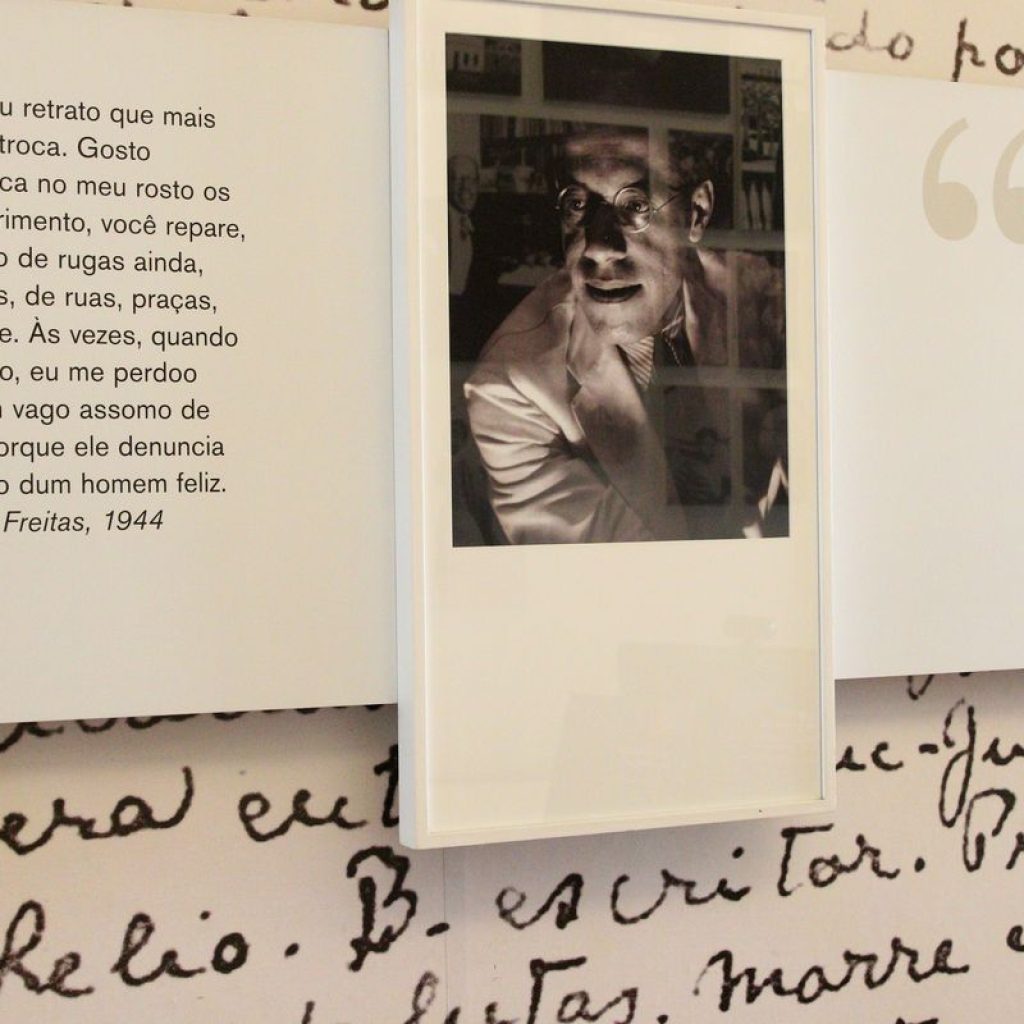 do po
u retrato que mais
troca. Gosto
ca no meu rosto os
rimento, você repare,
o de rugas ainda,
s, de ruas, praças,
e. Às vezes, quando
o, eu me perdoo
vago assomo de
orque ele denuncia
o dum homem feliz.
Freitas, 1944
“
era ent uc-Ju
helio. B. escritor. Pr
lutas. marre